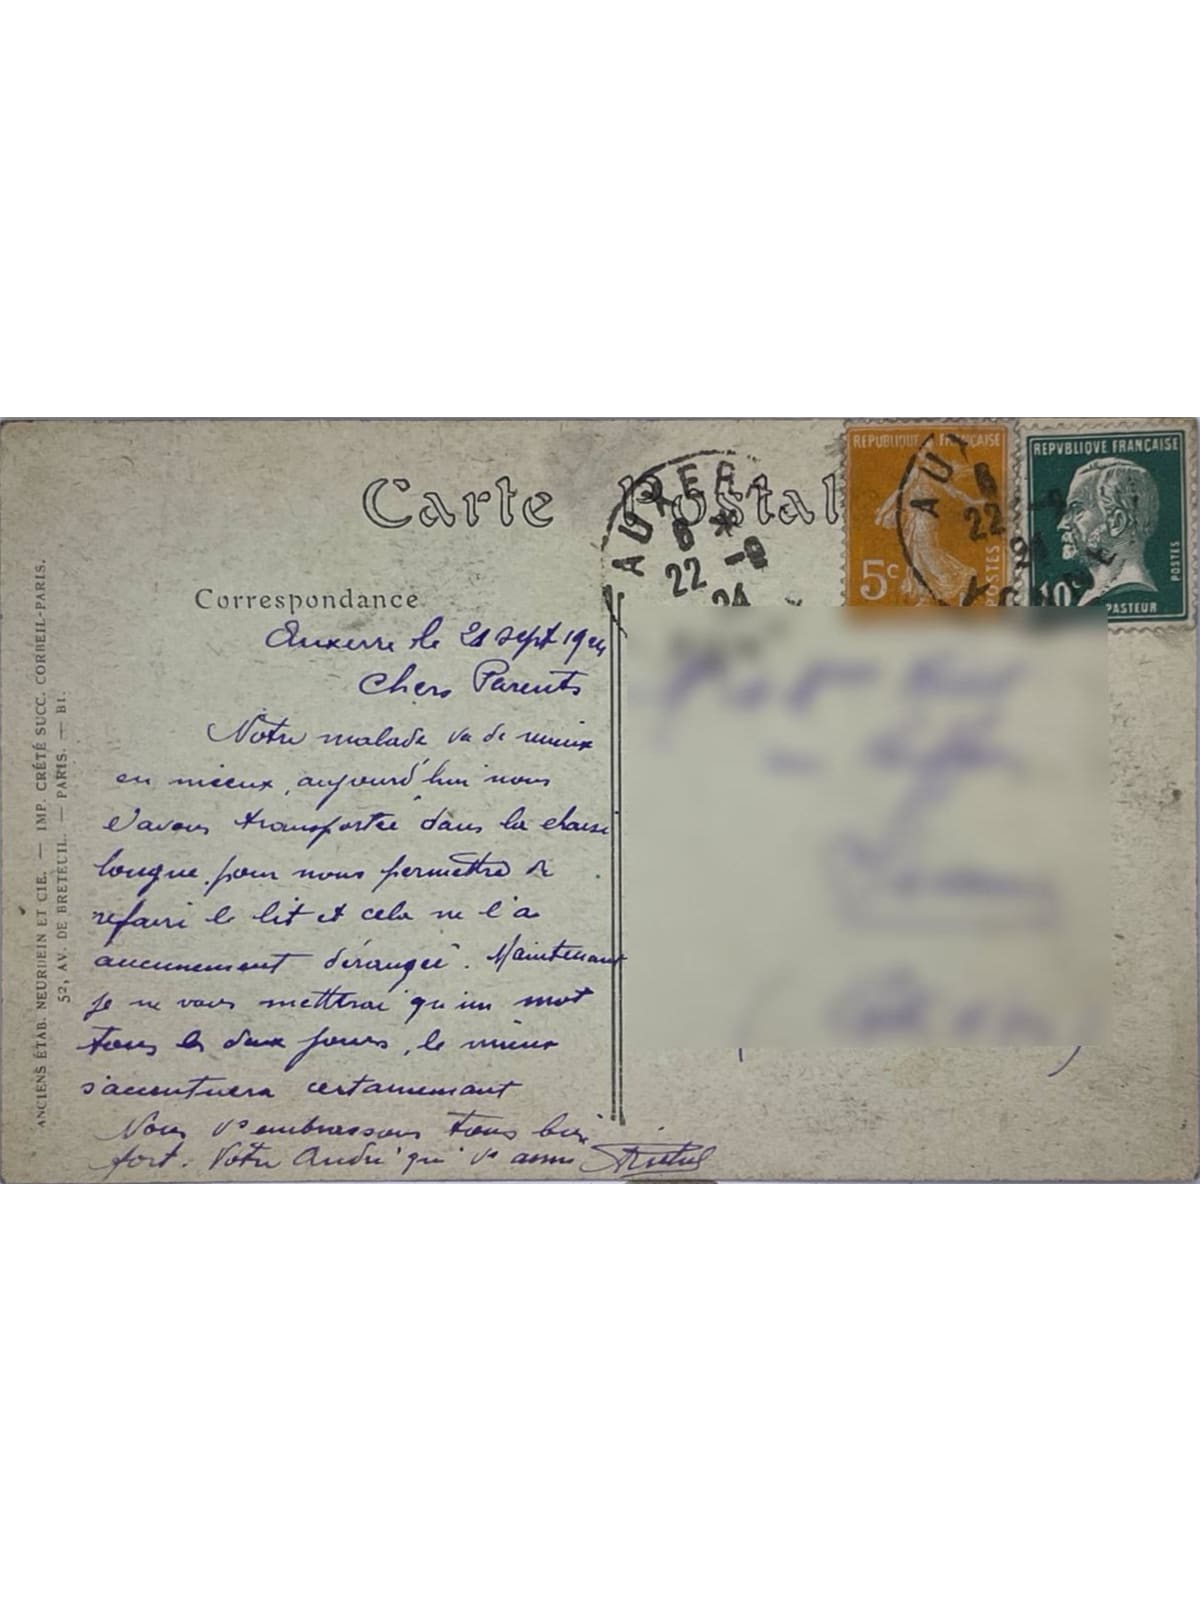 Carte Postal
Correspondance
Auxerre le 21 sept 1924
Chers Parents
Notre malade va de mieux
en mieux, aujourd'hui nous
l'avons transportée dans la chaise
longue pour nous permettre de
refaire le lit et cela ne l'a
aucunement dérangée. Maintenant
je ne vous mettrai qu'un mot
tous les deux jours, le mieux
s'accentuera certainement
Nous vs embrassons tous bien
fort. Votre André qui vs aime
ANCIENS ÉTAB. NEURDEIN ET CIE. — IMP. CRÉTÉ SUCC. CORBEIL-PARIS.
52, AV. DE BRETEUIL. — PARIS. — BI.
AUXERR
6 *
22 -9
24
REPUBLIQUE FRANÇAISE
5c
POSTES
AU
6
22 -9
24
REPVBLIQVE FRANÇAISE
10
POSTES
PASTEUR